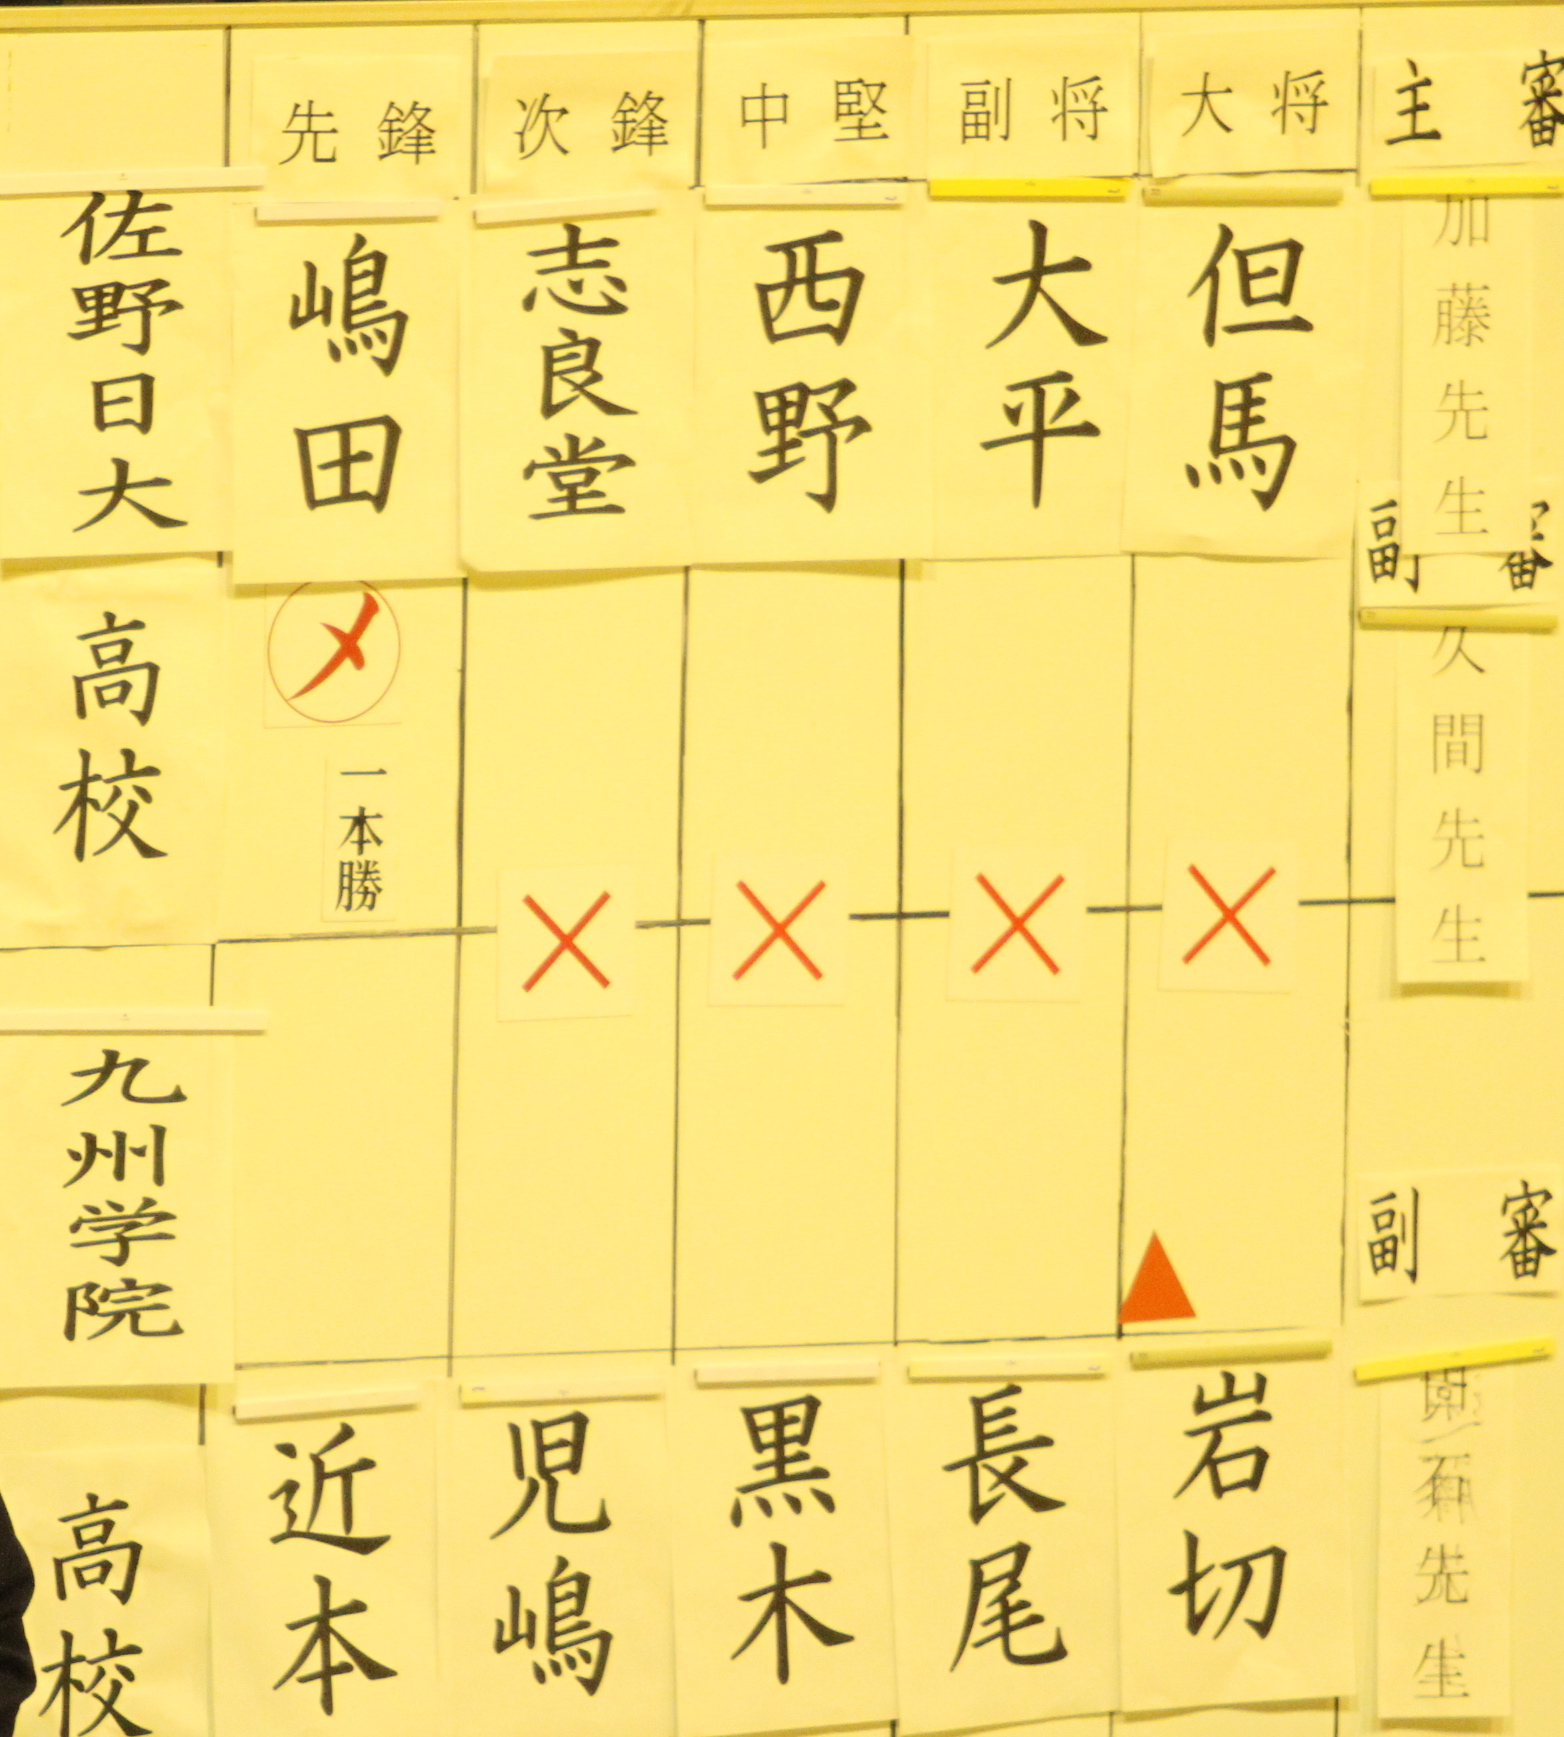 先鋒 次鋒 中堅 副将 大将 主審
佐野日大高校
嶋田
志良堂
西野
大平
但馬
加藤先生
副審
メ
一本勝
久間先生
九州学院高校
近本
児嶋
黒木
長尾
岩切
副審
先生